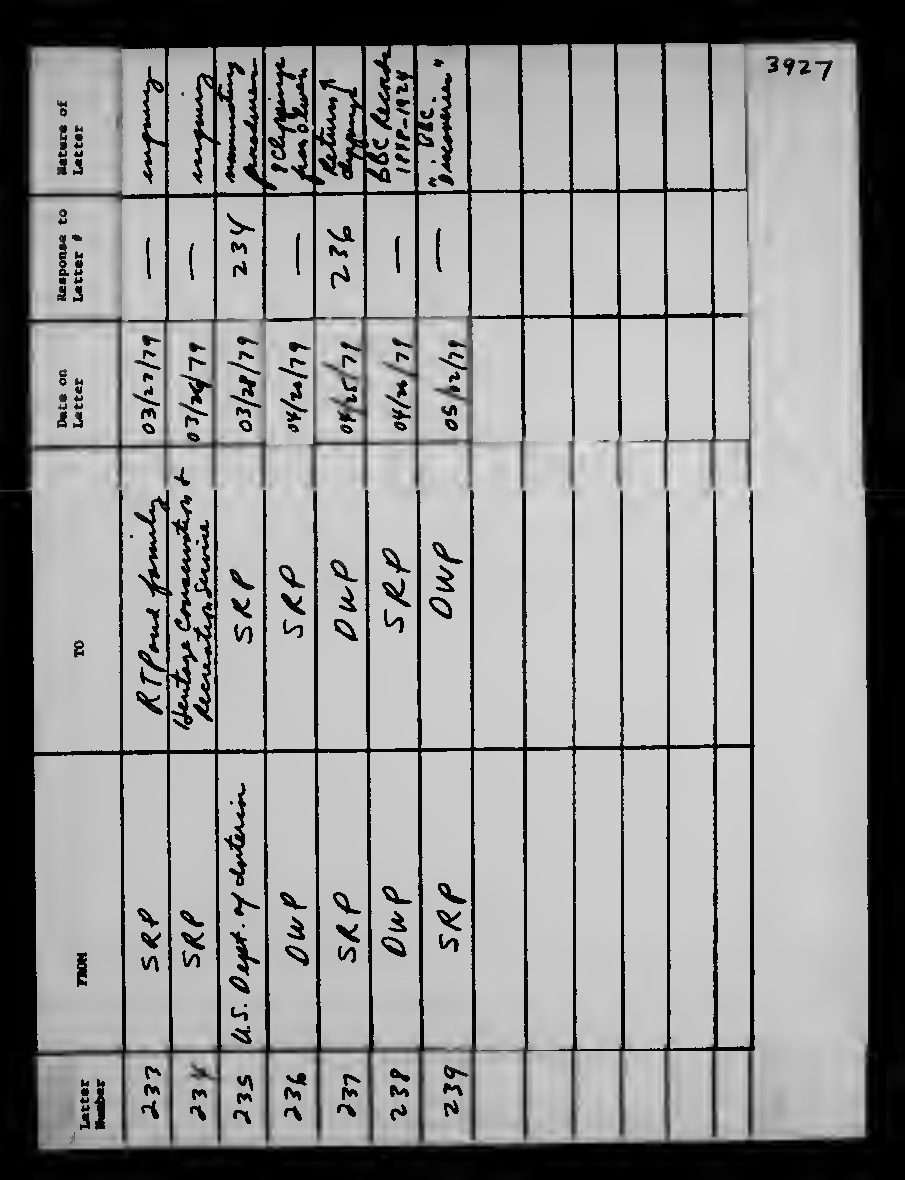 3927
Letter Number FROM TO Date on Letter Response to Letter # Nature of Letter
233 SRP RTP and family 03/27/79 — inquiry
234 SRP Heritage Conservation & Recreation Service 03/26/79 — inquiry
235 U.S. Dept. of Interior SRP 03/28/79 234 nominating procedures
236 OWP SRP 04/20/79 — Clippings from Oliver
237 SRP OWP 04/25/79 236 Return of clippings
238 OWP SRP 04/26/79 — BBC Records 1888-1924
239 SRP OWP 05/02/79 — BBC "Discoveries"